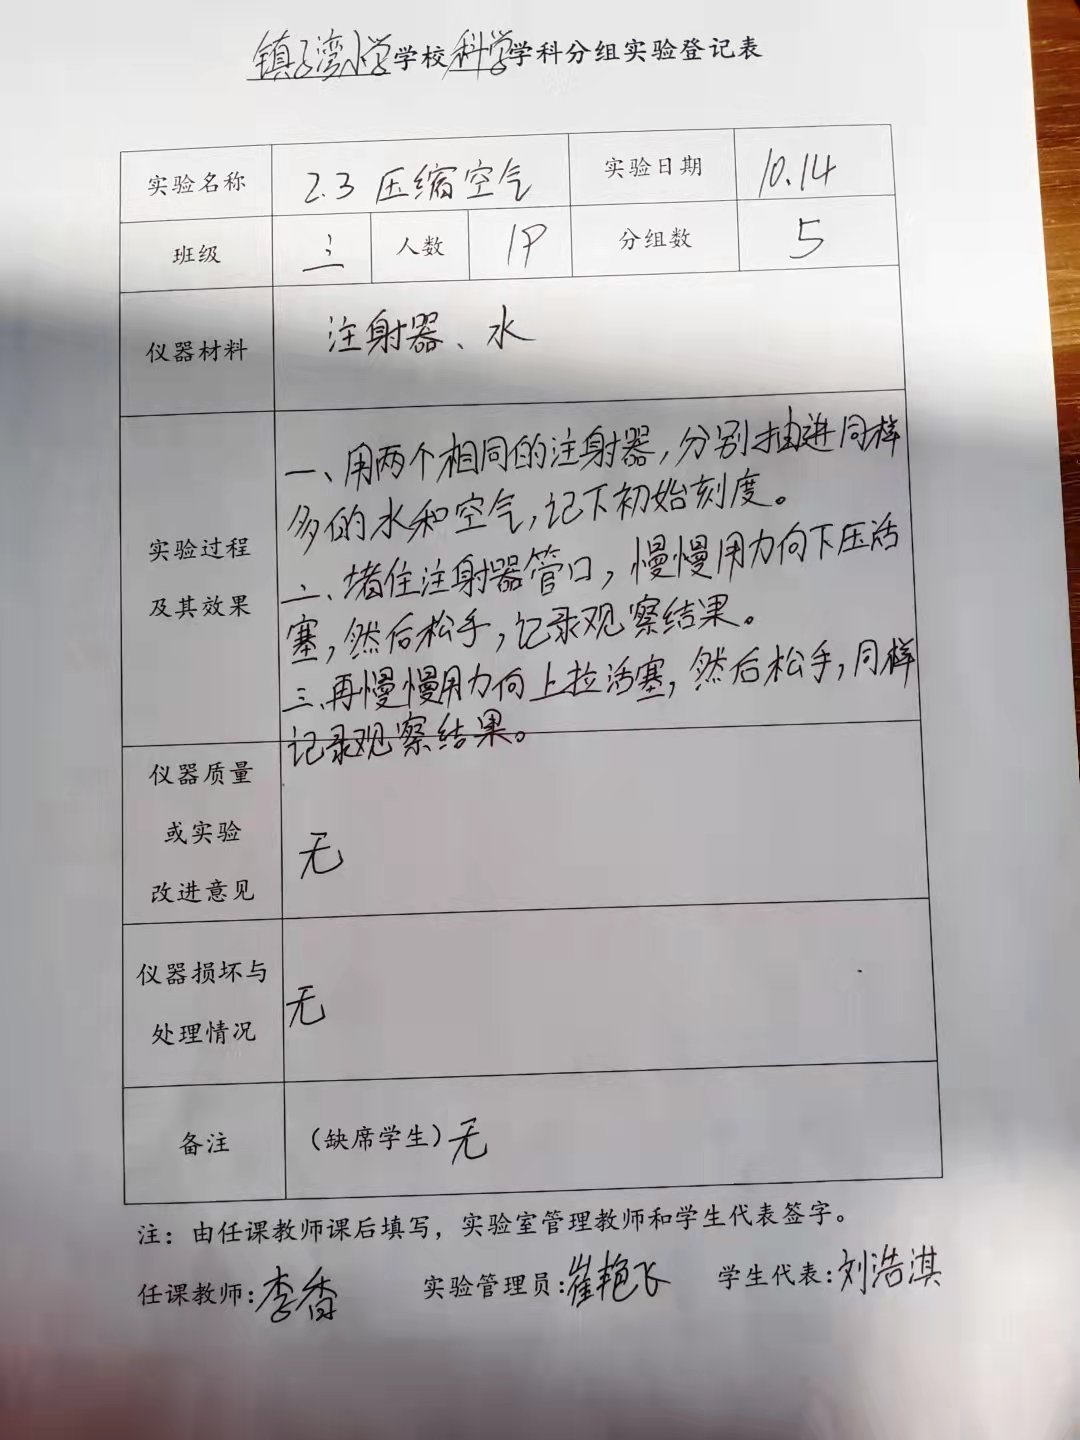 镇子湾小学学校科学学科分组实验登记表
实验名称 2.3 压缩空气 实验日期 10.14
班级 三 人数 19 分组数 5
仪器材料 注射器、水
实验过程
及其效果
一、用两个相同的注射器，分别抽进同样
多的水和空气，记下初始刻度。
二、堵住注射器管口，慢慢用力向下压活
塞，然后松手，记录观察结果。
三、再慢慢用力向上拉活塞，然后松手，同样
记录观察结果。
仪器质量
或实验
改进意见
无
仪器损坏与
处理情况
无
备注 （缺席学生）无
注：由任课教师课后填写，实验室管理教师和学生代表签字。
任课教师：李香 实验管理员：崔艳飞 学生代表：刘浩淇